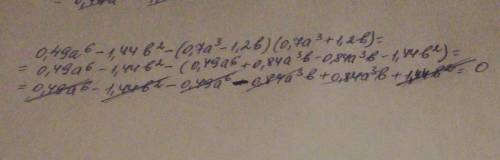 0,49a⁶-1,44b²-(0,7a³-1,2b)(0,7a³+1,2b)=
= 0,49a⁶-1,44b²-(0,49a⁶+0,84a³b-0,84a³b-1,44b²)=
= 0,49a⁶-1,44b²-0,49a⁶-0,84a³b+0,84a³b+1,44b²= 0